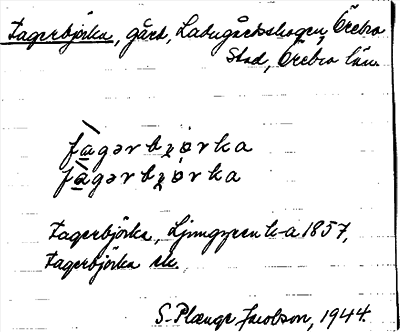 Fagerbjörka, gård, Ladugårdsskogen, Örebro
Stad, Örebro län.
fàgər bʒörka
fàgərbʒörka
Fagerbjörka, Ljunggren k-a 1857,
Fagerbjörka sk.
S. Plænge Jacobson, 1944.